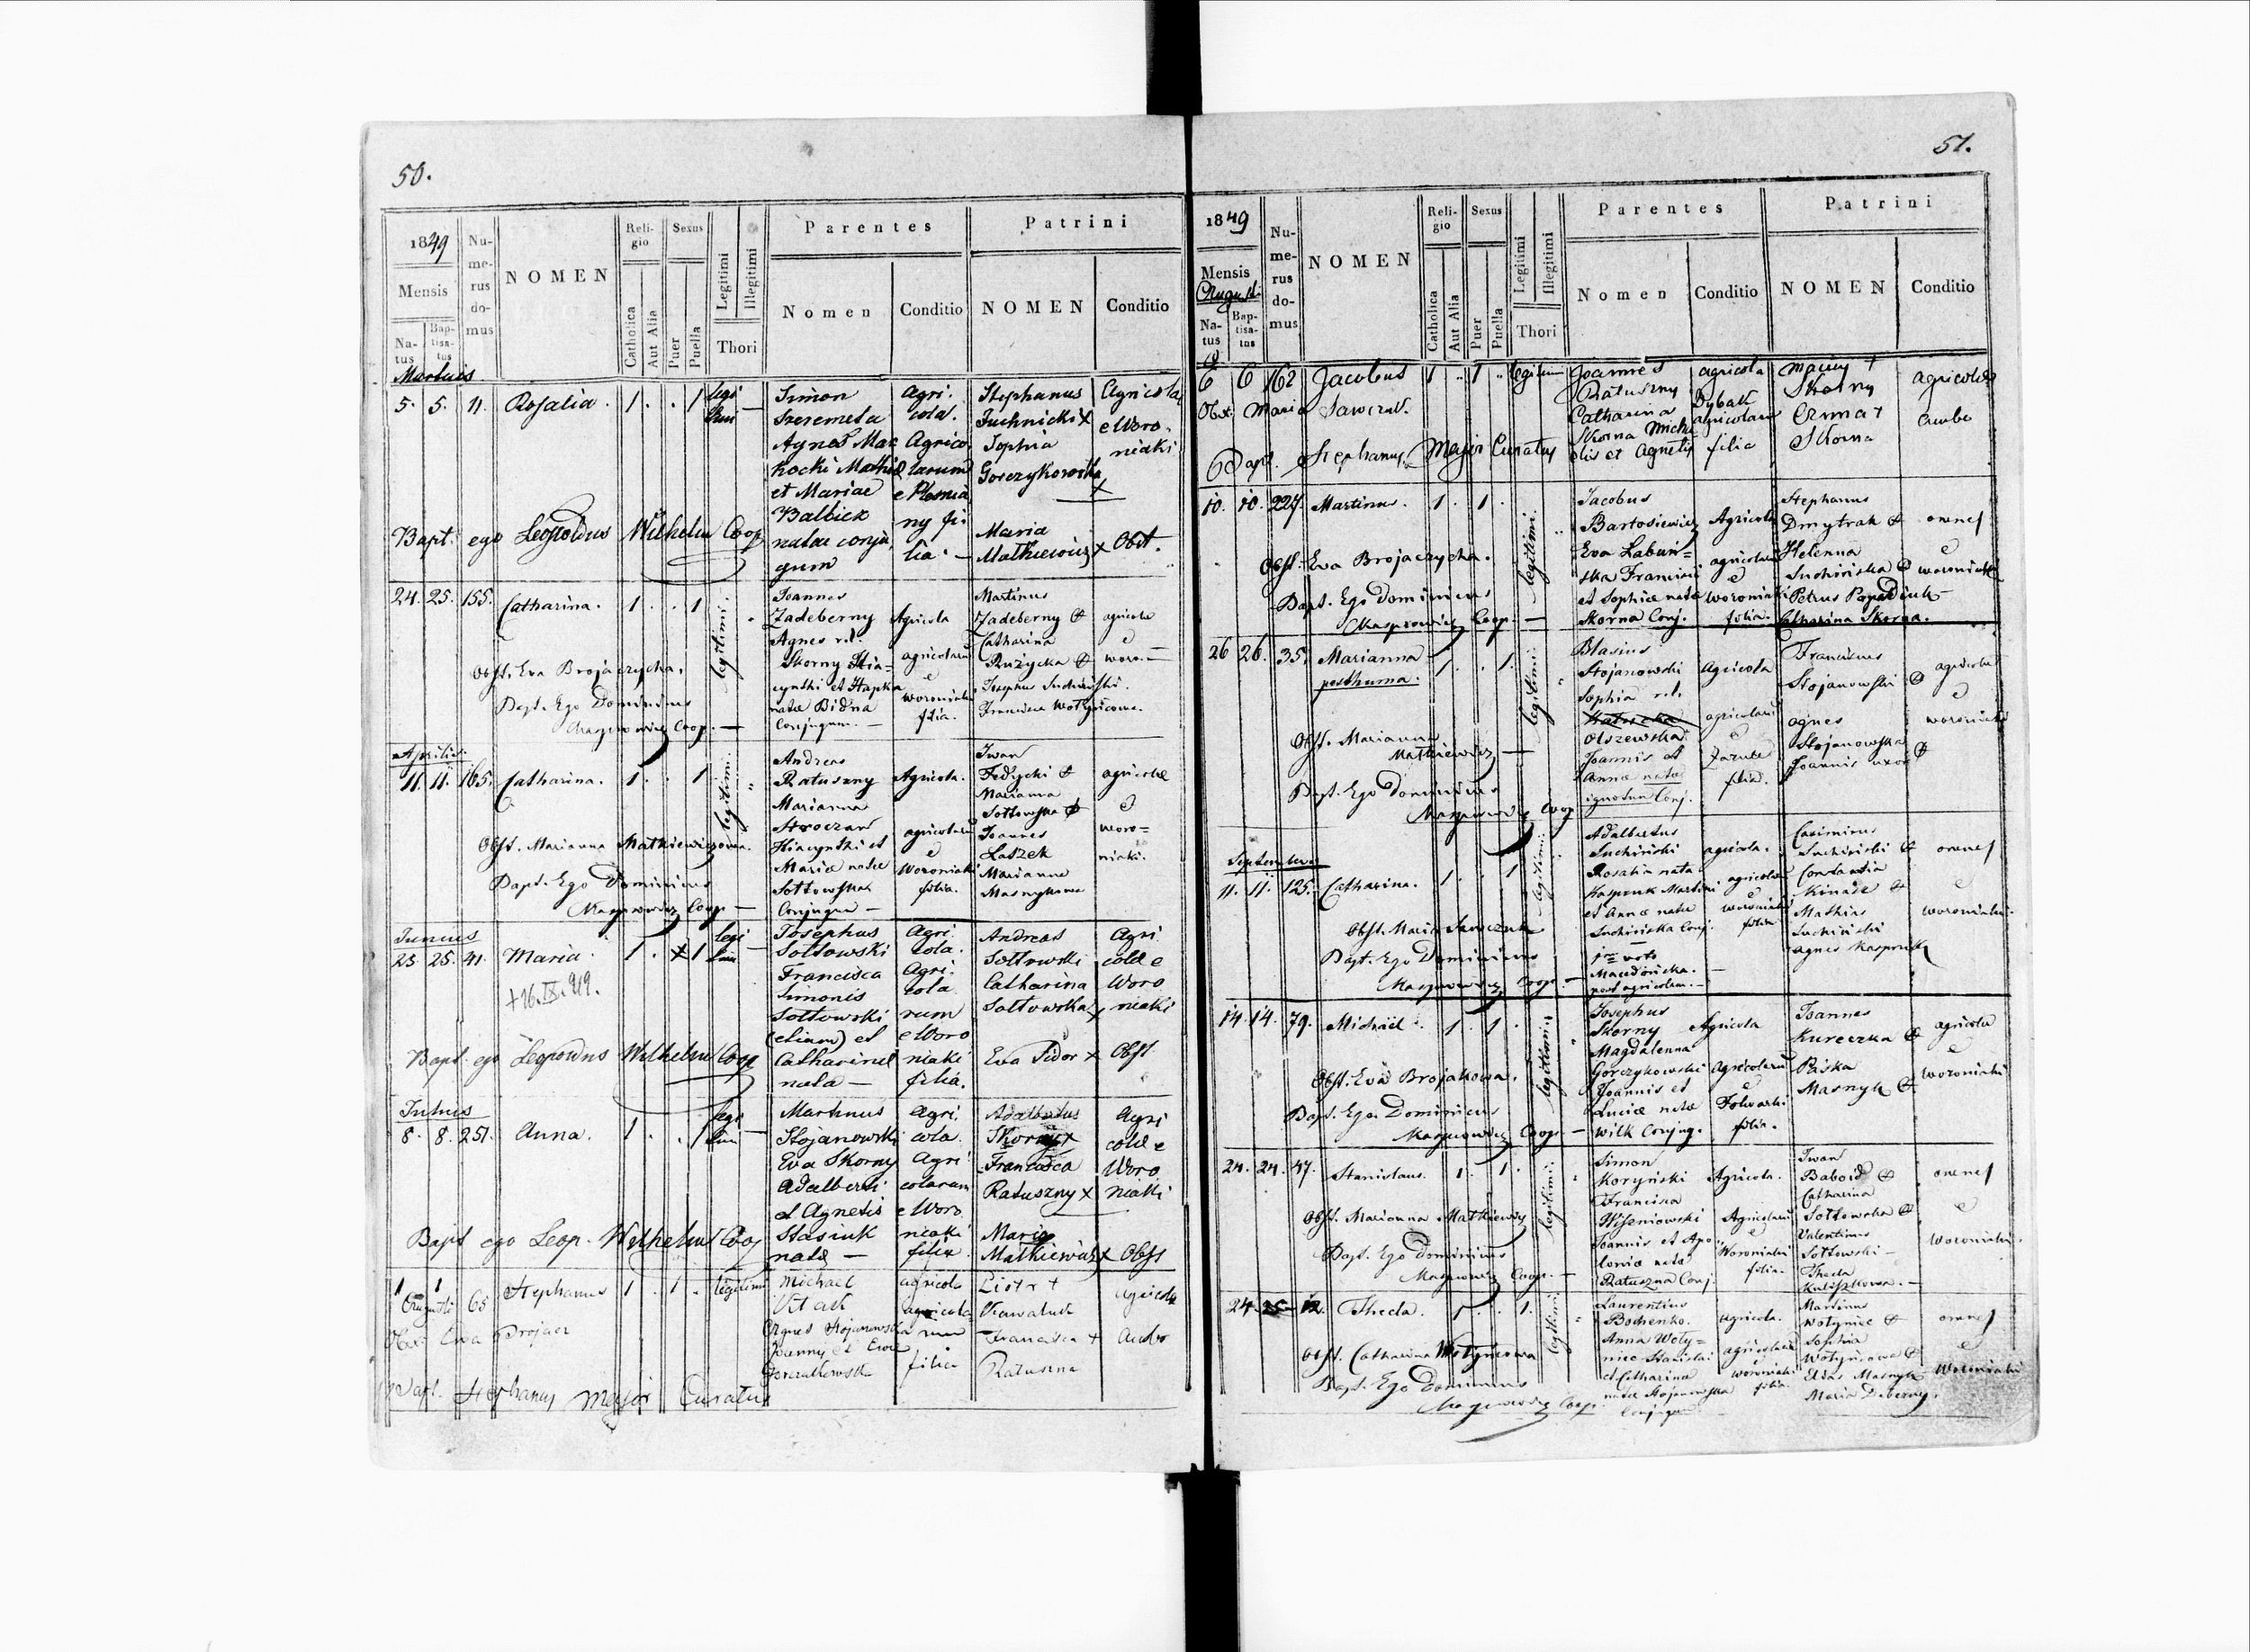 50.
1849
Mensis
Na-
tus
Bap-
tisa-
tus
Nu-
me-
rus
do-
mus
NOMEN
Reli-
gio
Catholica
Aut Alia
Sexus
Puer
Puella
Legitimi
Illegitimi
Thori
Parentes
Nomen
Conditio
Patrini
NOMEN
Conditio
Martius
5. 5. 11. Rosalia. 1 . . 1 legi
timi
Simon
Szeremeta
Agnes Mar
hocki Mathiæ
et Mariae
Balbick
natae conju
gum
Agri:
cola.
Agrico
larum
e
ny fi
lia. —
Stephanus
Suchnicki x
Sophia
Gorczykowska
x
Maria
Mathiewicz x
Agricolae
e Woro.
niaki
Obst.
Bapt. ego Leopoldus Wilhelm Coop
24. 25. 155. Catharina. 1 . . 1 legitimi.
Joannes
Zadeberny
Agnes
Skorny Hia=
cynthi et Hapka
natæ Bidna
Conjugum. —
Agricola
agricolarū
e
woroniaki
filia.
Martinus
Zadeberny
Catharina
Rużycka
Josephus Suchiński.
Francisca Wołyńcowa.
agricolæ
e
woro. —
Obst. Eva Brojaczycha.
Bapt. Ego Dominicus
Kasprowicz Coop. —
Aprilis.
11. 11. 165. Catharina. 1 . . 1 legitimi.
Andreas
Ratuszny
Marianna
Hiacynthi et
Mariæ natæ
Sołtowska
Conjugum —
Agricola.
agricolarū
e
Woroniaki
filia.
Iwan
Fedycki
Marianna
Sołtowska
Joannes
Łaszek
Marianna
Masnykowa
agricolæ
e
woro=
niaki.
Obst. Marianna Matkiewiczowa.
Bapt. Ego Dominicus
Kasprowicz Coop. —
Junius
25. 25. 41. Maria. 1 . x 1 legi
timi
+ 16. IX. 919.
Josephus
Sołtowski
Francisca
Simonis
Sołtowski
(etiam) et
Catharinæ
nata —
Agri.
cola.
Agri.
cola
rum
e Woro
niaki
filia.
Andreas
Sołtowski
Catharina
Sołtowska x
Eva Fidor x
Agri
colæ e
Woro
niaki
Obst
Bapt. ego Leopoldus Wilhelm Coop
Julius
8. 8. 251. Anna. 1 . . 1 legi
timi
Martinus
Stojanowski
Eva Skorny
Adalberti
et Agnetis
Stasiuk
natæ —
Agri.
cola.
Agri
colarum
e Woro
niaki
filia
Adalbertus
Skorny x
Francisca
Ratuszny x
Maria
Mathiewicz x
Agri
colæ e
Woro
niaki
Obst
Bapt ego Leop. Wilhelm Coop
1 1
Augusti 65 Stephanus 1 . 1 . legitimi
Michael
Vitak
Agnes Stojanowska
Joanny et Evae
agricola
agricola
rum
filia
Piotr +
Kowaluk
Francisca +
Ratuszna
agricolæ
Ambo
Obst. Ewa Brojacz
Bapt. Stephanus Major Curatus
51.
1849
Mensis
Augusti
Na-
tus
Bap-
tisa-
tus
Nu-
me-
rus
do-
mus
NOMEN
Reli-
gio
Catholica
Aut Alia
Sexus
Puer
Puella
Legitimi
Illegitimi
Thori
Parentes
Nomen
Conditio
Patrini
NOMEN
Conditio
6 6 162 Jacobus 1 . 1 . legitimi
Joannes
Ratuszny
Catharina
Skorna Micha
elis et Agnetis
agricola
Dybak
agricolarum
filia
Maciey +
Skorny
Anna +
Skorna
agricolæ
Ambo
Obst. Maria Sawczuk.
Bapt. Stephanus Major Curatus
10. 10. 227. Martinus. 1 . 1 . legitimi.
Jacobus
Bartosiewicz
Eva Łabuń=
ska Francisci
et Sophiæ natæ
Skorna Conj.
Agricola
agricolarū
e
woroniaki
filia.
Stephanus
Dmytrak
Helenna
Suchińska
Petrus Popadiuk —
Catharina Skorna.
omnes
e
woroniaki
Obst. Eva Brojaczycha.
Bapt. Ego Dominicus
Kasprowicz Coop. —
26 26. 35. Marianna 1 . . 1. legitimi.
posthuma.
Blasius
Stojanowski
Sophia
Olszewska
Joannis et
Annæ natæ
ignotum Conj.
Agricola
agricolarū
e
Zazule
filia.
Franciscus
Stojanowski
Agnes
Stojanowska
Joannis uxor
agricolæ
e
woroniaki
Obst. Marianna
Matkiewicz —
Bapt. Ego Dominicus
Kasprowicz Coop
September
11. 11. 125. Catharina. 1 . . 1 legitimi.
Adalbertus
Suchiński
Rosalia nata
Kaspruk Martini
et Annæ natæ
Suchińska Conj.
voto
Macedońska. —
post agricolam. —
agricola.
agricolarū
e
woroniaki
filia.
Casimirus
Suchiński
Constantia
Mathias
Suchiński
Agnes Kaspruk
omnes
e
woroniaki.
Obst. Maria Sawczuk
Bapt. Ego Dominicus
Kasprowicz Coop. —
14. 14. 79. Michael. 1. 1. legitimi
Josephus
Skorny
Magdalenna
Gorczykowski
Joannis et
Luciæ natæ
Wilk Conjug.
Agricola
Agricolarū
e
Folwarki
filia.
Joannes
Kureczka
Paśka
Masnyk
agricolæ
e
woroniaki
Obst. Eva Brojakowa.
Bapt. Ego Dominicus
Kasprowicz Coop. —
24. 24. 47. Stanislaus. 1. 1. legitimi.
Simon
Koryński
Francisca
Wiszniowski
Joannis et Apo
loniæ natæ
Ratuszna Conj.
Agricola.
Agricolarū
e
Woroniaki
filia.
Iwan
Catharina
Sołtowska
Valentinus
Sołtowski —
Thecla
omnes
e
Woroniaki.
Obst. Marianna Matkiewicz
Bapt. Ego Dominicus
Kasprowicz Coop. —
24. 25 12. Thecla. 1 . . 1. legitimi
Laurentius
Bochenko.
Anna Woły=
niec Stanislai
et Catharina
natæ Stojanowska
Conjugum
agricola.
agricolarū
e
woroniaki
filia.
Martinus
Wołyniec
Sophia
Wołyńcowa
Elias Masnyk
Maria Deberny.
omnes
e
Woroniaki
Obst. Catharina Wołyńcowa
Bapt. Ego Dominicus
Kasprowicz Coop.